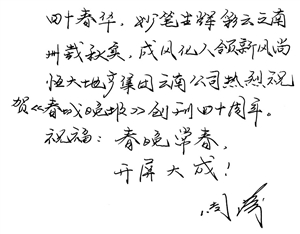 四十春华，妙笔生辉彩云云南
卅载秋实，成风化人领新风尚
恒大地产集团云南公司热烈祝
贺《春城晚报》创刊四十周年。
祝福：春晚常春，
开屏大成！